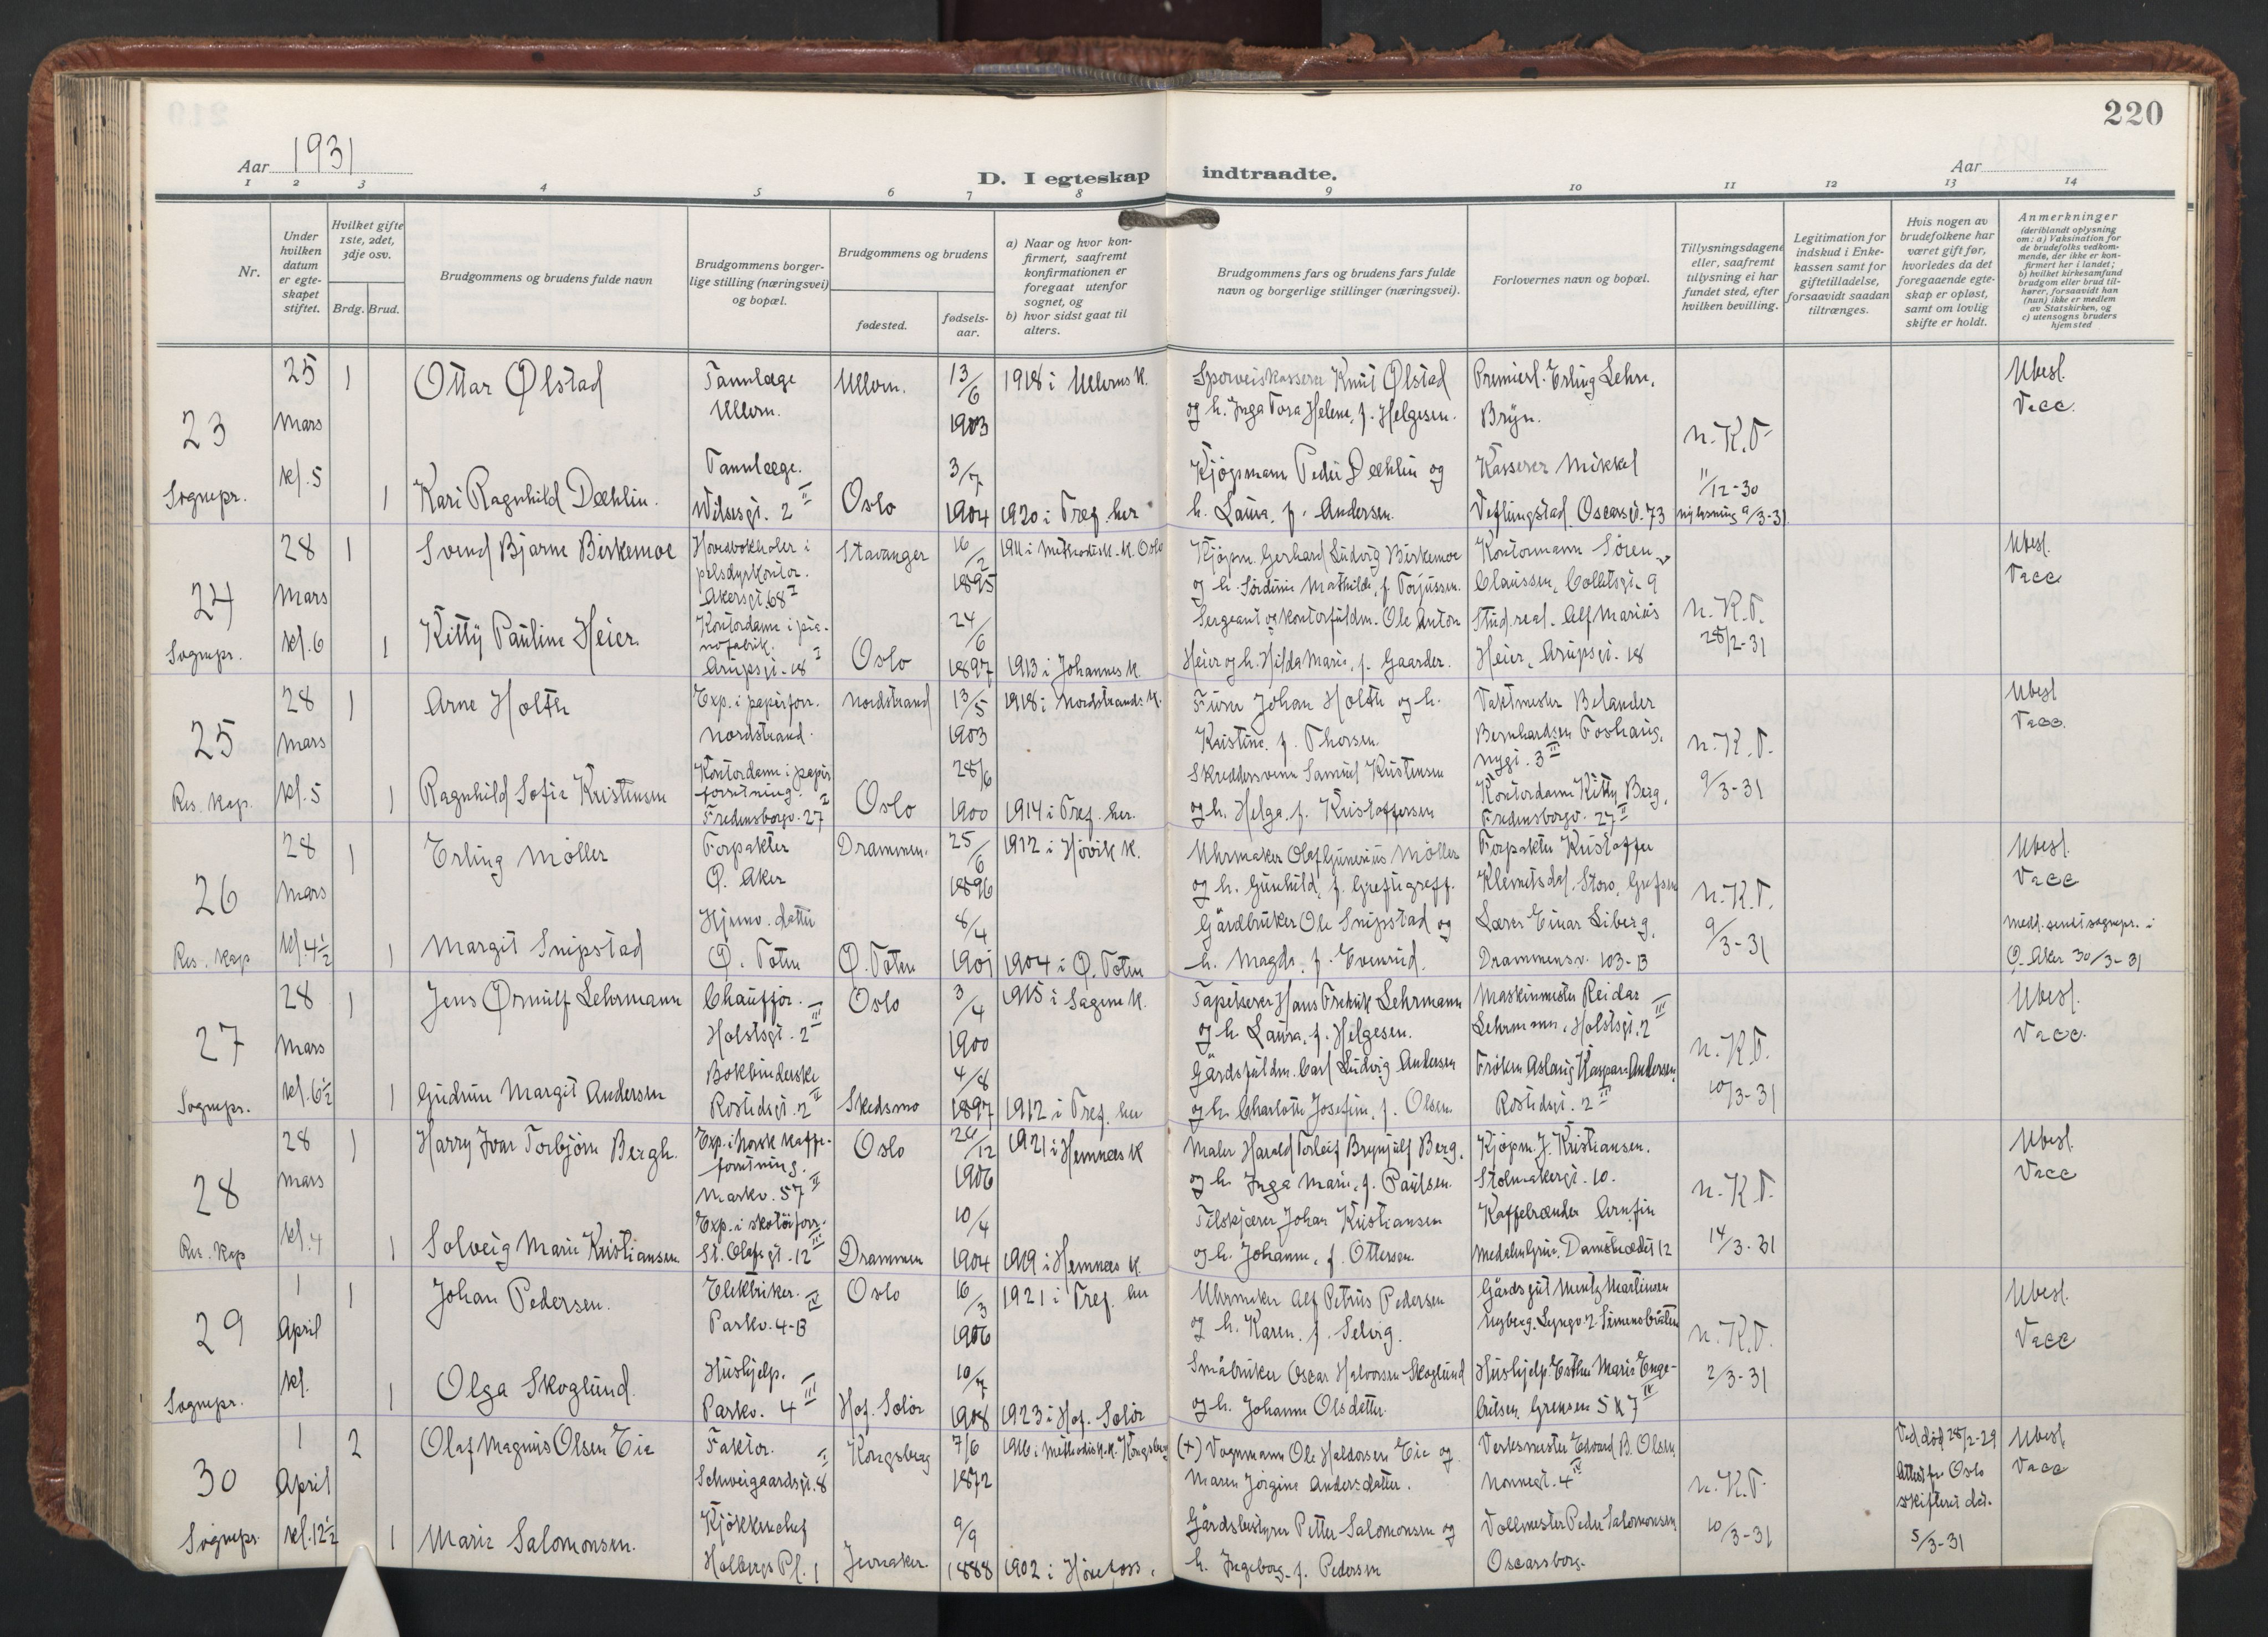 220
Aar 1931
D. I egteskap indtraadte.
Aar
1 2 3 4 5 6 7 8 9 10 11 12 13 14
Nr.
Under hvilken datum er egteskapet stiftet.
Hvilket gifte 1ste, 2det, 3dje osv.
Brdg. Brud.
Brudgommens og brudens fulde navn
Brudgommens borgerlige stilling (næringsvei) og bopæl.
Brudgommens og brudens
fødested.
fødselsaar.
a) Naar og hvor konfirmert, saafremt konfirmationen er foregaat utenfor sognet, og
b) hvor sidst gaat til alters.
Brudgommens fars og brudens fars fulde navn og borgerlige stillinger (næringsvei).
Forlovernes navn og bopæl.
Tillysningsdagene eller, saafremt tillysning ei har fundet sted, efter hvilken bevilling.
Legitimation for indskud i Enkekassen samt for giftetilladelse, forsaavidt saadan tiltrænges.
Hvis nogen av brudefolkene har været gift før, hvorledes da det foregaaende egteskap er opløst, samt om lovlig skifte er holdt.
Anmerkninger (deriblandt oplysning om: a) Vaksination for de brudefolks vedkommende, der ikke er konfirmert her i landet; b) hvilket kirkesamfund brudgom eller brud tilhører, forsaavidt han (hun) ikke er medlem av Statskirken, og c) utensogns bruders hjemsted
23 Sognepr. 25 Mars kl. 5
1 Ottar Ølstad Tannlæge Ullern. Ullern. 13/6 1903 1918 i Ullerns K.
Sporveiskasserer Knut Ølstad og h. Inga Tora Helene, f. Helgesen.
Premierl. Erling Lehn, Bryn.
1 Kari Ragnhild Dæhlin. Tannlæge. Wilsesgt. 2 II Oslo 3/7 1904 1920 i Tref. her
Kjøpmann Peder Dæhlin og h. Laura, f. Andersen.
Kasserer Mikkel Veflingstad Oscarsg. 73
n. K. T. 11/12-30 ny lysning 9/3-31
Ubesl. Vacc.
24 Sognepr. 28 Mars kl. 6
1 Svend Bjarne Birkemoe Hovedbokholder i pelsdyrkontor. Akersgt. 68 I Stavanger 16/2 1895 1911 i Methodistk. K. Oslo
Kjøpm. Gerhard Ludvig Birkemoe og h. Sørdinie Mathilde, f. Torjussen.
Kontormann Søren Claussen, Collettsgt. 9
1 Kitty Pauline Heier. Kontordame i pianofabrik. Arupsgt. 18 I Oslo 24/6 1897 1913 i Johannes K.
Sergeant og kontorfuldm. Ole Anton Heier og h. Hilda Marie, f. Gaarder.
Stud. real. Alf Marius Heier, Arupsgt. 18
n. K. T. 28/2-31
Ubesl. Vacc
25 Res. Kap. 28 Mars kl. 5
1 Arne Holth Exp. i papirforr. Nordstrand. Nordstrand 13/5 1903 1918 i Nordstrands K.
Furer Johan Holth og h. Kristine, f. Thorsen.
Vaktmester Belander Bernhardsen Foshaug, Nygt. 3 II
1 Ragnhild Sofie Kristensen Kontordame i papirforretning. Fredensborgv. 27 I Oslo 28/6 1900 1914 i Tref. her.
Skreddersvenn Samuel Kristensen og h. Helga, f. Kristoffersen
Kontordame Kitty Berg, Fredensborgv. 27 II
n. K. T. 9/3-31
Ubesl Vacc.
26 Res. Kap 28 Mars kl. 4 1/2
1 Erling Møller Forpakter Ø. Aker Drammen. 25/6 1896 1912 i Høvik K.
Uhrmaker Olaf Gunerius Møller og h. Gunhild, f. Grefsgreff.
Forpakter Kristoffer Klemetsdal, Storo, Grefsen
1 Margit Snipstad Hjemv. datter Ø. Toten Ø. Toten 8/4 1901 1904 i Ø. Toten
Gårdbruker Ole Snipstad og h. Magda, f. Evensrud.
Lærer Einar Liberg, Drammensv. 103-B
n. K. T. 9/3-31
Ubesl. Vacc
Medd. sendt sognepr. i Ø. Aker 30/3-31
27 Sognepr. 28 Mars kl. 6 1/2
1 Jens Ørnulf Lehrmann Chauffør. Holstsgt. 2 III Oslo 3/4 1900 1915 i Sagene K.
Tapetserer Hans Fredrik Lehrmann og h. Laura, f. Helgesen.
Maskinmester Reidar Lehrmann, Holstsgt. 2 III
1 Gudrun Margit Andersen Bokbinderske Rostedsgt. 2 II Skedsmo 4/8 1897 1912 i Tref. her
Gårdsfuldm. Carl Ludvig Andersen og h. Charlotte Josefine, f. Olsen.
Frøken Aslaug Kaspara Andersen, Rostedsgt. 2 II
n. K. T. 10/3-31
Ubesl. Vacc.
28 Res. Kap 28 Mars kl. 4
1 Harry Ivar Torbjørn Bergh. Exp. i Norsk kaffeforretning. Markv. 57 II Oslo 26/12 1906 1921 i Hemnes K
Maler Harald Torleif Brynjulf Berg, og h. Inga Marie, f. Paulsen.
Kjøpm. J. Kristiansen. Stolmakergt. 10.
1 Solveig Marie Kristiansen. Exp. i skotøiforr. St. Olafs gt. 12 III Drammen 10/4 1904 1919 i Hemnes K.
Tilskjærer Johan Kristiansen og h. Johanne, f. Ottersen.
Kaffebrænder Arnfin Medalen Grini, Damstrædet 12
n. K. T. 14/3-31
Ubesl. Vacc
29 Sognepr. 1 April kl.
1 Johan Pedersen. Elektriker. Parkv. 4-B IV Oslo 16/3 1906 1921 i Tref. her
Uhrmaker Alf Petrus Pedersen og h. Karen, f. Selvig.
Gårdsgut Mentz Martinsen Nyberg, Lyngv. 2 Simensbråten
1 Olga Skoglund. Hushjelp. Parkv. 4 III Hof. Solør 10/7 1908 1923 i Hof. Solør
Småbruker Oscar Halvorsen Skoglund og h. Johanne Olsdatter.
Hushjelp. Esther Marie Engebretsen, Grensen 5 & 7 IV
n. K. T. 2/3-31
Ubesl. Vacc
30 Sognepr. 1 April kl. 12 1/2
2 Olaf Magnus Olsen Eie Faktor. Schweigaardsgt. 8 I Kongsberg 7/6 1872 1916 i Methodistk. K. Kongsberg
(+) Vognmann Ole Haldorsen Eie og Maren Jørgine Andersdatter.
Verksmester Edvard B. Olsen, Nonnegt. 4 IV
1 Marie Salomonsen. Kjøkkenchef Holbergs Pl. 1 Jevnaker. 9/9 1888 1902 i Hønefoss.
Gårdsbestyrer Petter Salomonsen og h. Ingeborg, f. Pedersen
Vollmester Peder Salomonsen, Oscarsborg.
n. K. T. 10/3-31
Ved død 28/2-29 Attest fra Oslo skifterett dat. 5/3-31
Ubesl. Vacc